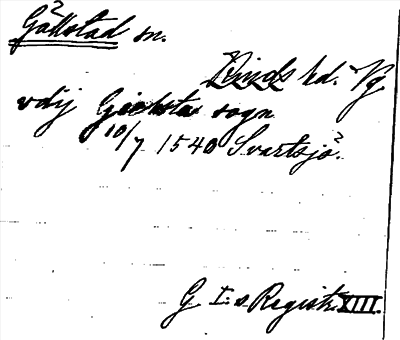 Gållstad sn.
Kinds hd. Vg.
vdij Giolsta sogn
10/7 1540 Svartsjö.
G. I:s Registr. XIII.